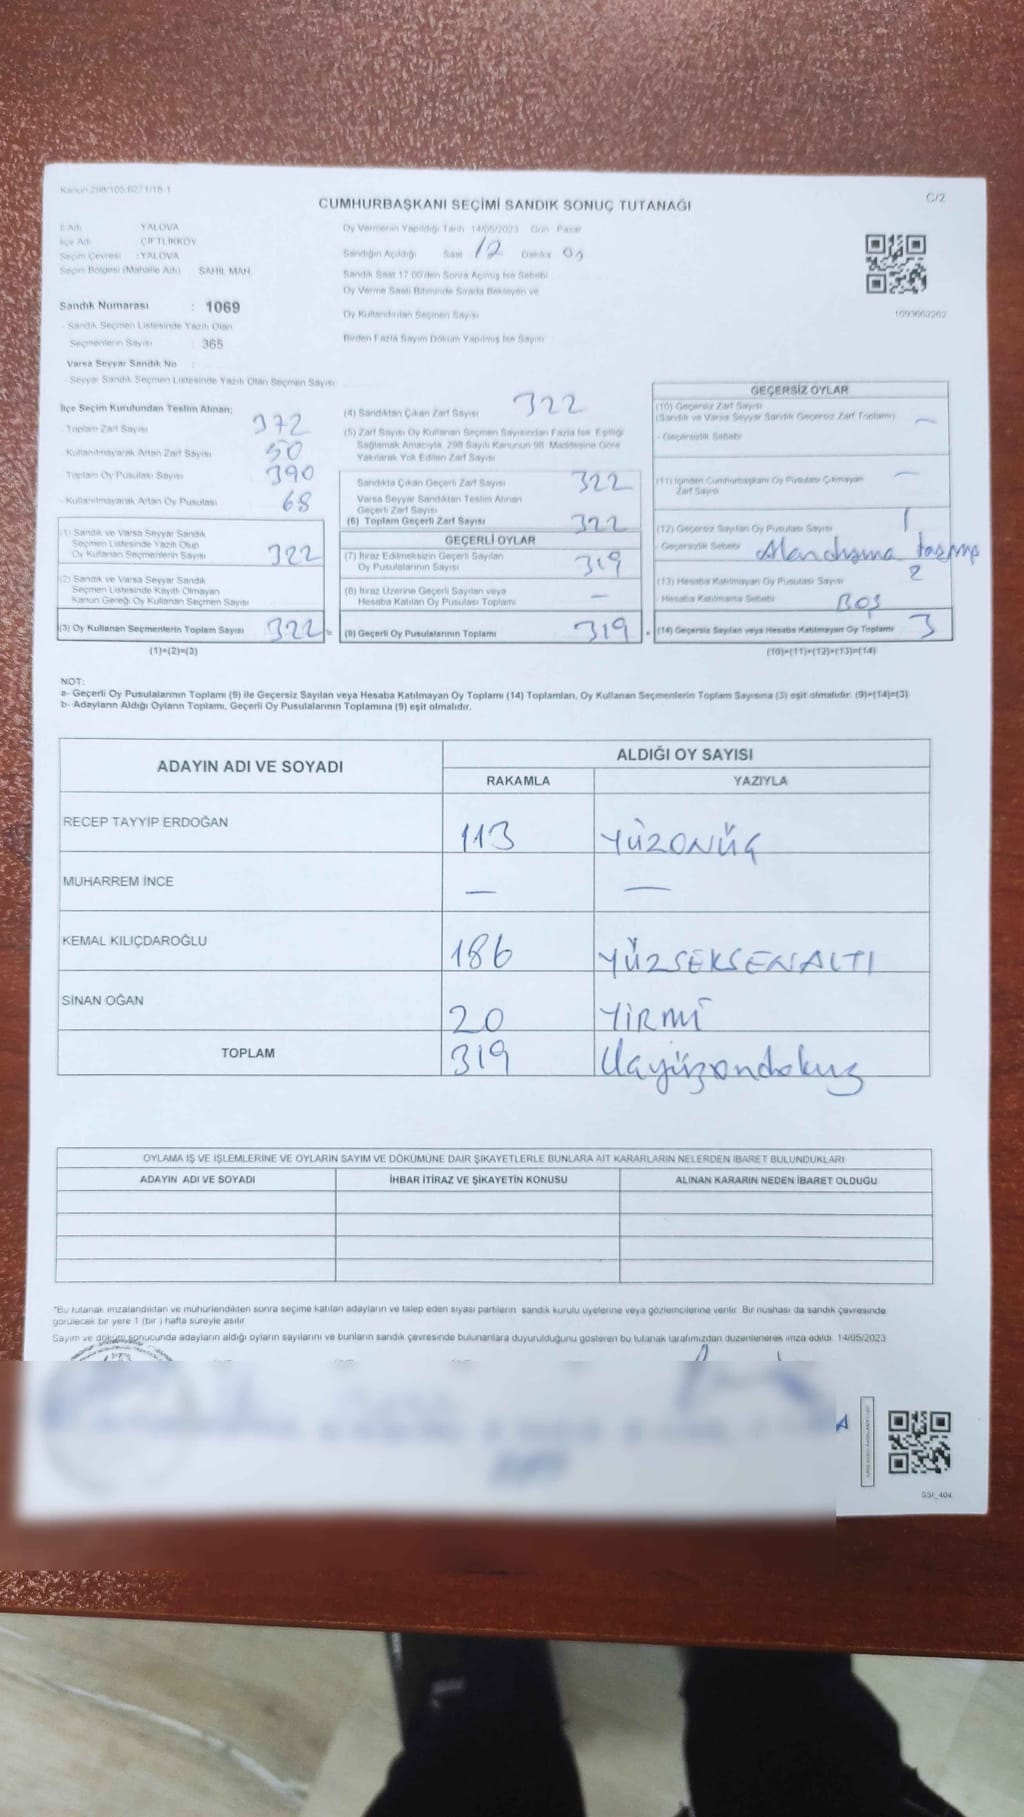 Kanun 298/105,6271/18-1
C/2
CUMHURBAŞKANI SEÇİMİ SANDIK SONUÇ TUTANAĞI
İl Adı YALOVA
İlçe Adı ÇİFTLİKKÖY
Seçim Çevresi : YALOVA
Seçim Bölgesi (Mahalle Adı) SAHİL MAH.
Sandık Numarası : 1069
- Sandık Seçmen Listesinde Yazılı Olan
Seçmenlerin Sayısı : 365
Varsa Seyyar Sandık No :
- Seyyar Sandık Seçmen Listesinde Yazılı Olan Seçmen Sayısı
Oy Vermenin Yapıldığı Tarih 14/05/2023 Gün Pazar
Sandığın Açıldığı Saat 12 Dakika
Sandık Saat 17.00'den Sonra Açılmış İse Sebebi
Oy Verme Saati Bitiminde Sırada Bekleyen ve
Oy Kullandırılan Seçmen Sayısı
Birden Fazla Sayım Döküm Yapılmış İse Sayısı
1093662262
İlçe Seçim Kurulundan Teslim Alınan;
- Toplam Zarf Sayısı 372
- Kullanılmayarak Artan Zarf Sayısı 50
- Toplam Oy Pusulası Sayısı 390
- Kullanılmayarak Artan Oy Pusulası 68
(1) Sandık ve Varsa Seyyar Sandık
Seçmen Listesinde Yazılı Olup
Oy Kullanan Seçmenlerin Sayısı 322
(2) Sandık ve Varsa Seyyar Sandık
Seçmen Listesine Kayıtlı Olmayan
Kanun Gereği Oy Kullanan Seçmen Sayısı
(3) Oy Kullanan Seçmenlerin Toplam Sayısı 322
(1)+(2)=(3)
(4) Sandıktan Çıkan Zarf Sayısı 322
(5) Zarf Sayısı Oy Kullanan Seçmen Sayısından Fazla İse, Eşitliği
Sağlamak Amacıyla, 298 Sayılı Kanunun 98. Maddesine Göre
Yakılarak Yok Edilen Zarf Sayısı
Sandıkta Çıkan Geçerli Zarf Sayısı 322
Varsa Seyyar Sandıktan Teslim Alınan
Geçerli Zarf Sayısı
(6) Toplam Geçerli Zarf Sayısı 322
GEÇERLİ OYLAR
(7) İtiraz Edilmeksizin Geçerli Sayılan
Oy Pusulalarının Sayısı 319
(8) İtiraz Üzerine Geçerli Sayılan veya
Hesaba Katılan Oy Pusulası Toplamı —
(9) Geçerli Oy Pusulalarının Toplamı 319
GEÇERSİZ OYLAR
(10) Geçersiz Zarf Sayısı
(Sandık ve Varsa Seyyar Sandık Geçersiz Zarf Toplamı) —
- Geçersizlik Sebebi
(11) İçinden Cumhurbaşkanı Oy Pusulası Çıkmayan
Zarf Sayısı —
(12) Geçersiz Sayılan Oy Pusulası Sayısı 1
- Geçersizlik Sebebi
(13) Hesaba Katılmayan Oy Pusulası Sayısı 2
- Hesaba Katılmama Sebebi BOŞ
(14) Geçersiz Sayılan veya Hesaba Katılmayan Oy Toplamı 3
(10)+(11)+(12)+(13)=(14)
NOT:
a- Geçerli Oy Pusulalarının Toplamı (9) ile Geçersiz Sayılan veya Hesaba Katılmayan Oy Toplamı (14) Toplamları, Oy Kullanan Seçmenlerin Toplam Sayısına (3) eşit olmalıdır. (9)+(14)=(3)
b- Adayların Aldığı Oyların Toplamı, Geçerli Oy Pusulalarının Toplamına (9) eşit olmalıdır.
ADAYIN ADI VE SOYADI
ALDIĞI OY SAYISI
RAKAMLA YAZIYLA
RECEP TAYYİP ERDOĞAN 113 YÜZONÜÇ
MUHARREM İNCE — —
KEMAL KILIÇDAROĞLU 186 YÜZSEKSENALTI
SİNAN OĞAN 20 YİRMİ
TOPLAM 319 Üçyüzondokuz
OYLAMA İŞ VE İŞLEMLERİNE VE OYLARIN SAYIM VE DÖKÜMÜNE DAİR ŞİKAYETLERLE BUNLARA AİT KARARLARIN NELERDEN İBARET BULUNDUKLARI
ADAYIN ADI VE SOYADI İHBAR İTİRAZ VE ŞİKAYETİN KONUSU ALINAN KARARIN NEDEN İBARET OLDUĞU
*Bu tutanak imzalandıktan ve mühürlendikten sonra seçime katılan adayların ve talep eden siyasi partilerin sandık kurulu üyelerine veya gözlemcilerine verilir. Bir nüshası da sandık çevresinde
görülecek bir yere 1 (bir) hafta süreyle asılır.
Sayım ve döküm sonucunda adayların aldığı oyların sayılarını ve bunların sandık çevresinde bulunanlara duyurulduğunu gösteren bu tutanak tarafımızdan düzenlenerek imza edildi. 14/05/2023